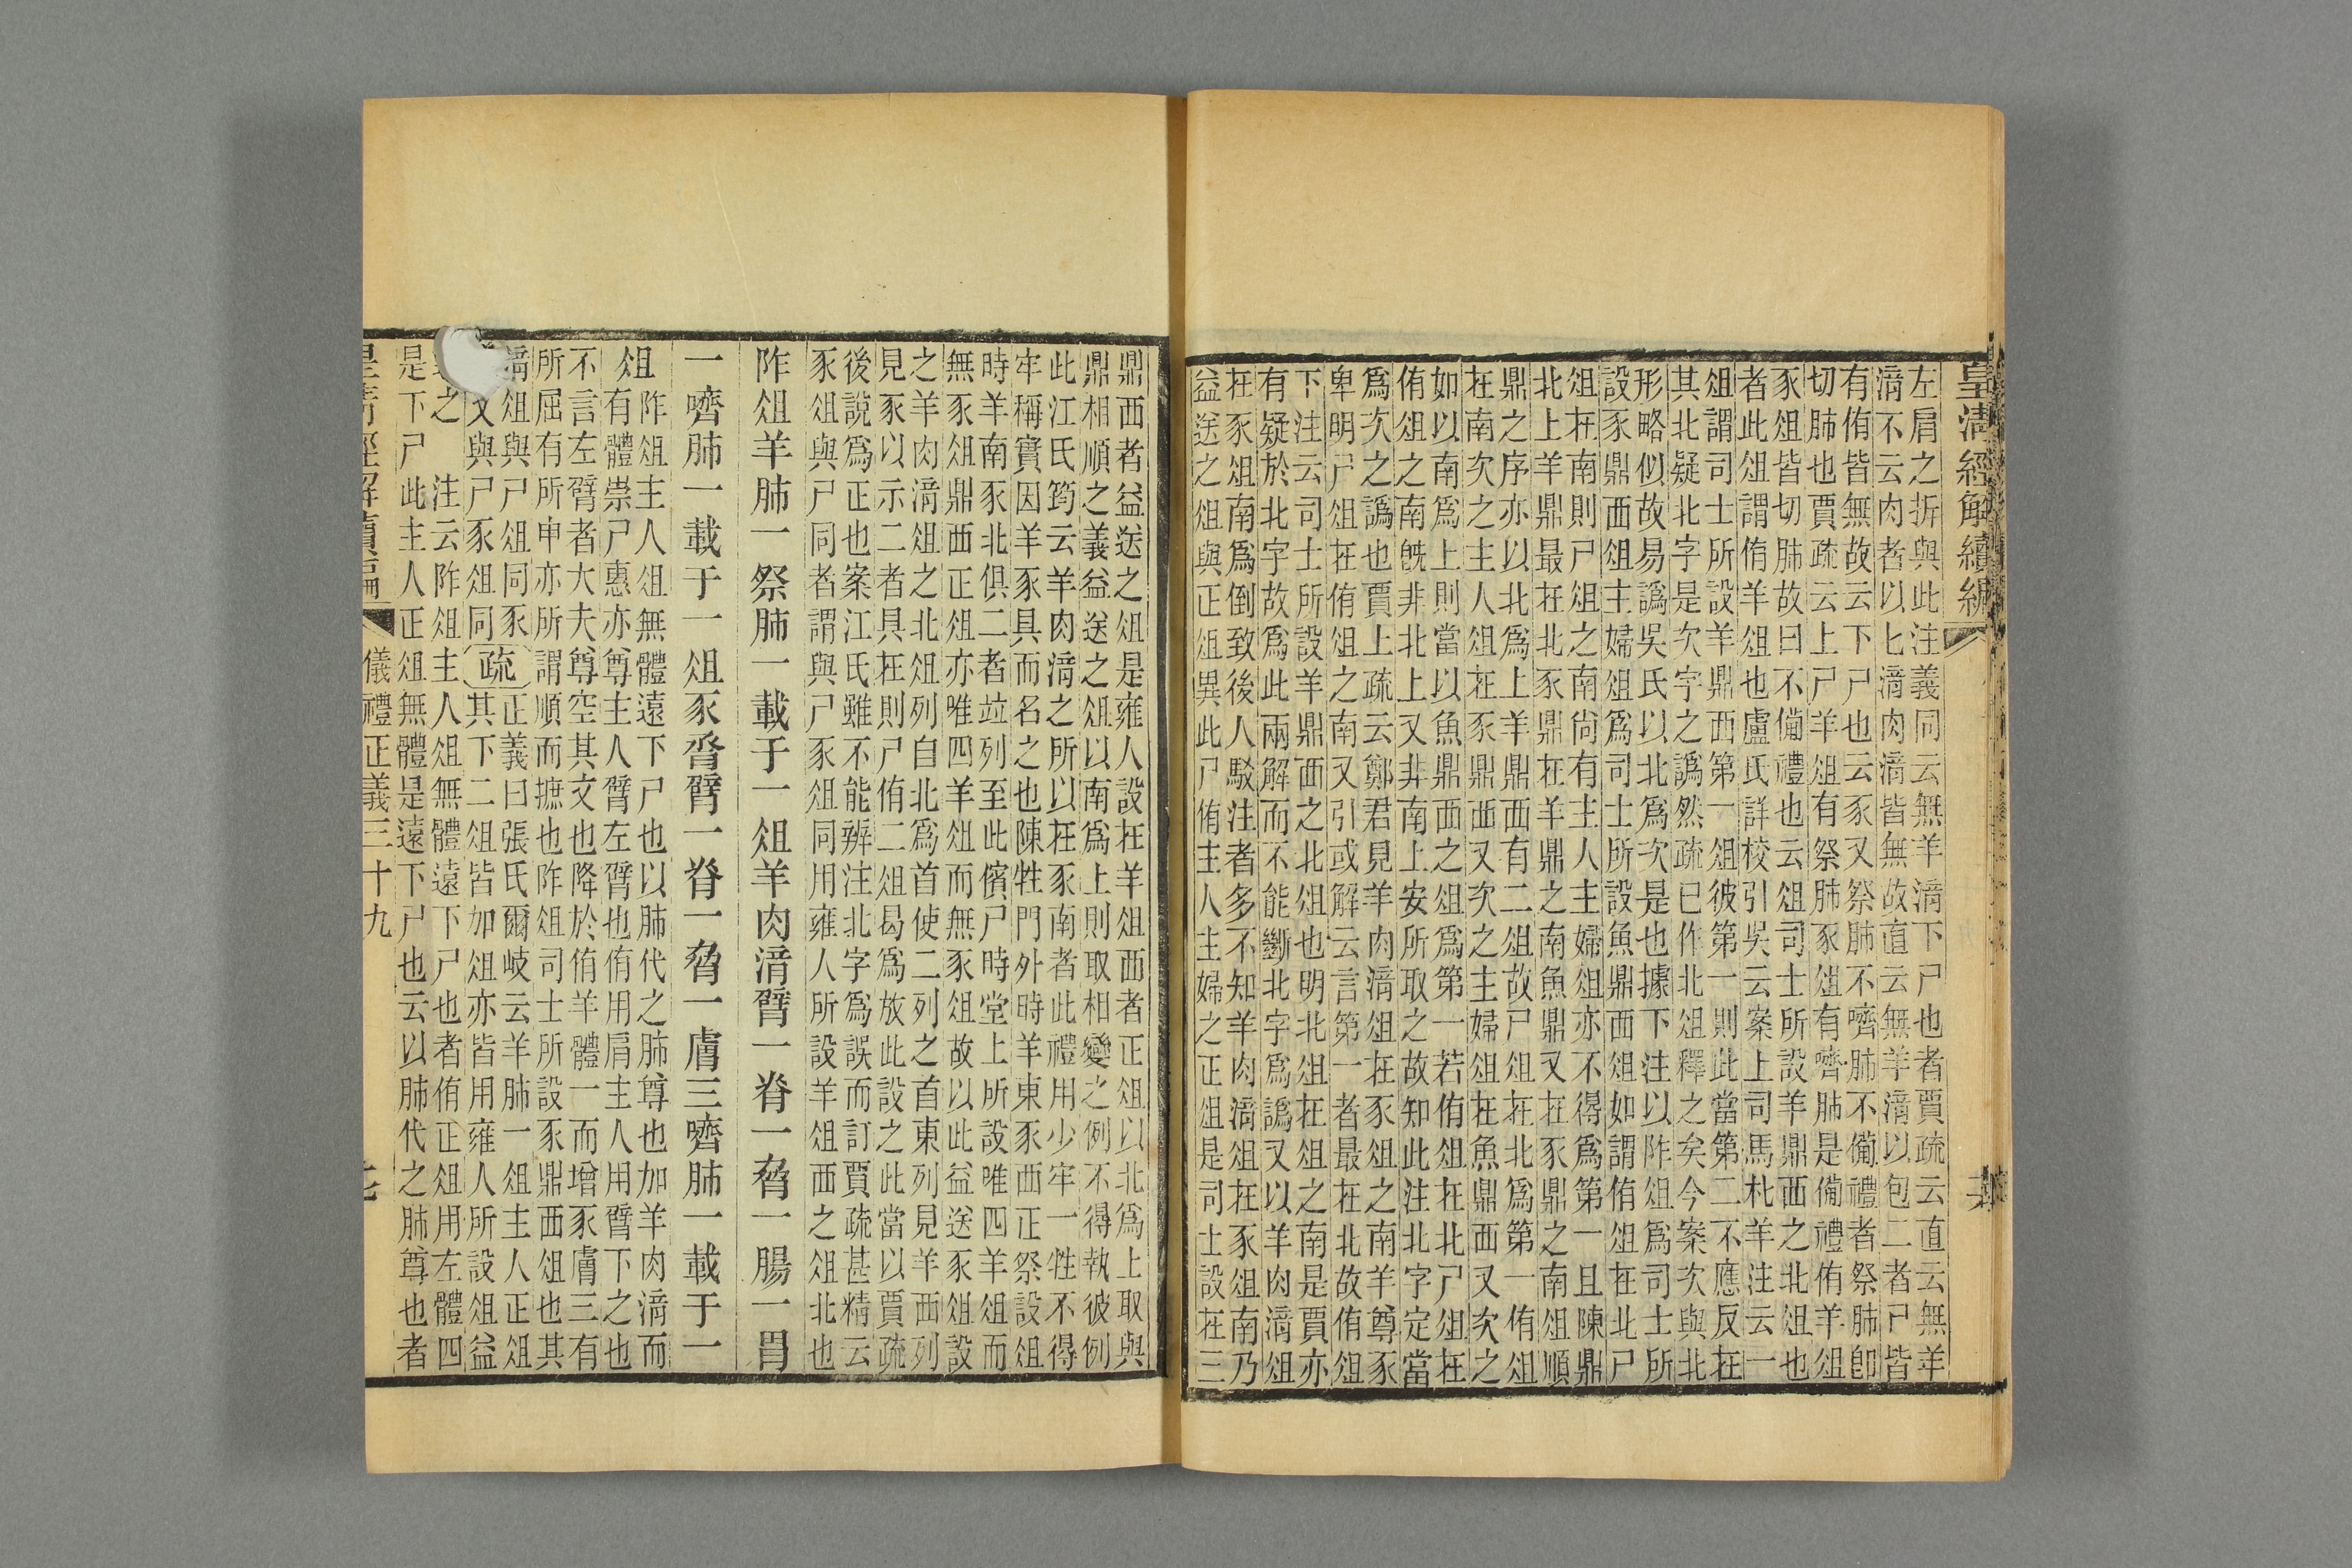 皇清經解續編
左肩之折與此注義同云無羊湇下尸也者賈疏云直云無羊
湇不云肉者以匕湇肉湇皆無故直云無羊湇以包二者已皆
有侑皆無故云下尸也云豕又祭肺不嚌肺不備禮者祭肺卽
切肺也賈疏云上尸羊俎有祭肺豕俎有嚌肺是備禮侑羊俎
豕俎皆切肺故曰不備禮也云俎司士所設羊鼎西之北俎也
者此俎謂侑羊俎也盧氏詳校引吳云案上司馬朼羊注云一
俎謂司士所設羊鼎西第一俎彼第一則此當第二不應反在
其北疑北字是次字之譌然疏已作北俎釋之矣今案次與北
形略似故易譌吳氏以北爲次是也據下注以阼俎爲司士所
設豕鼎西俎主婦俎爲司士所設魚鼎西俎如謂侑俎在北尸
俎在南則尸俎之南尚有主人主婦俎亦不得爲第一且陳鼎
北上羊鼎最在北豕鼎在羊鼎之南魚鼎又在豕鼎之南俎順
鼎之序亦以北爲上羊鼎西有二俎故尸俎在北爲第一侑俎
在南次之主人俎在豕鼎西又次之主婦俎在魚鼎西又次之
如以南爲上則當以魚鼎西之俎爲第一若侑俎在北尸俎在
侑俎之南旣非北上又非南上安所取之故知此注北字定當
爲次之譌也賈上疏云鄭君見羊肉湇俎在豕俎之南羊尊豕
卑明尸俎在侑俎之南又引或解云言第一者最在北故侑俎
下注云司士所設羊鼎西之北俎也明北俎在俎之南是賈亦
有疑於北字故爲此兩解而不能斷北字爲譌又以羊肉湇俎
在豕俎南爲倒致後人駁注者多不知羊肉湇俎在豕俎南乃
益送之俎與正俎異此尸侑主人主婦之正俎是司士設在三
鼎西者益送之俎是雍人設在羊俎西者正俎以北爲上取與
鼎相順之義益送之俎以南爲上則取相變之例不得執彼例
此江氏筠云羊肉湇之所以在豕南者此禮用少牢一牲不得
牢稱實因羊豕具而名之也陳牲門外時羊東豕西正祭設俎
時羊南豕北俱二者竝列至此儐尸時堂上所設唯四羊俎而
無豕俎鼎西正俎亦唯四羊俎而無豕俎故以此益送豕俎設
之羊肉湇俎之北俎列自北爲首使二列之首東列見羊西列
見豕以示二者具在則尸侑二俎曷爲放此設之此當以賈疏
後說爲正也案江氏雖不能辨注北字爲誤而訂賈疏甚精云
豕俎與尸同者謂與尸豕俎同用雍人所設羊俎西之俎北也
阼俎羊肺一祭肺一載于一俎羊肉湇臂一脊一脅一腸一胃
一嚌肺一載于一俎豕脀臂一脊一脅一膚三嚌肺一載于一
俎
阼俎主人俎無體遠下尸也以肺代之肺尊也加羊肉湇而
有體崇尸惠亦尊主人臂左臂也侑用肩主人用臂下之也
不言左臂者大夫尊空其文也降於侑羊體一而增豕膚三有
所屈有所申亦所謂順而摭也阼俎司士所設豕鼎西俎也其
湇俎與尸俎同豕
又與尸豕俎同
疏
正義曰張氏爾岐云羊肺一俎主人正俎
其下二俎皆加俎亦皆用雍人所設俎益
之 注云阼俎主人俎無體遠下尸也者侑正俎用左體四
是下尸此主人正俎無體是遠下尸也云以肺代之肺尊也者
皇清經解續編
儀禮正義三十九